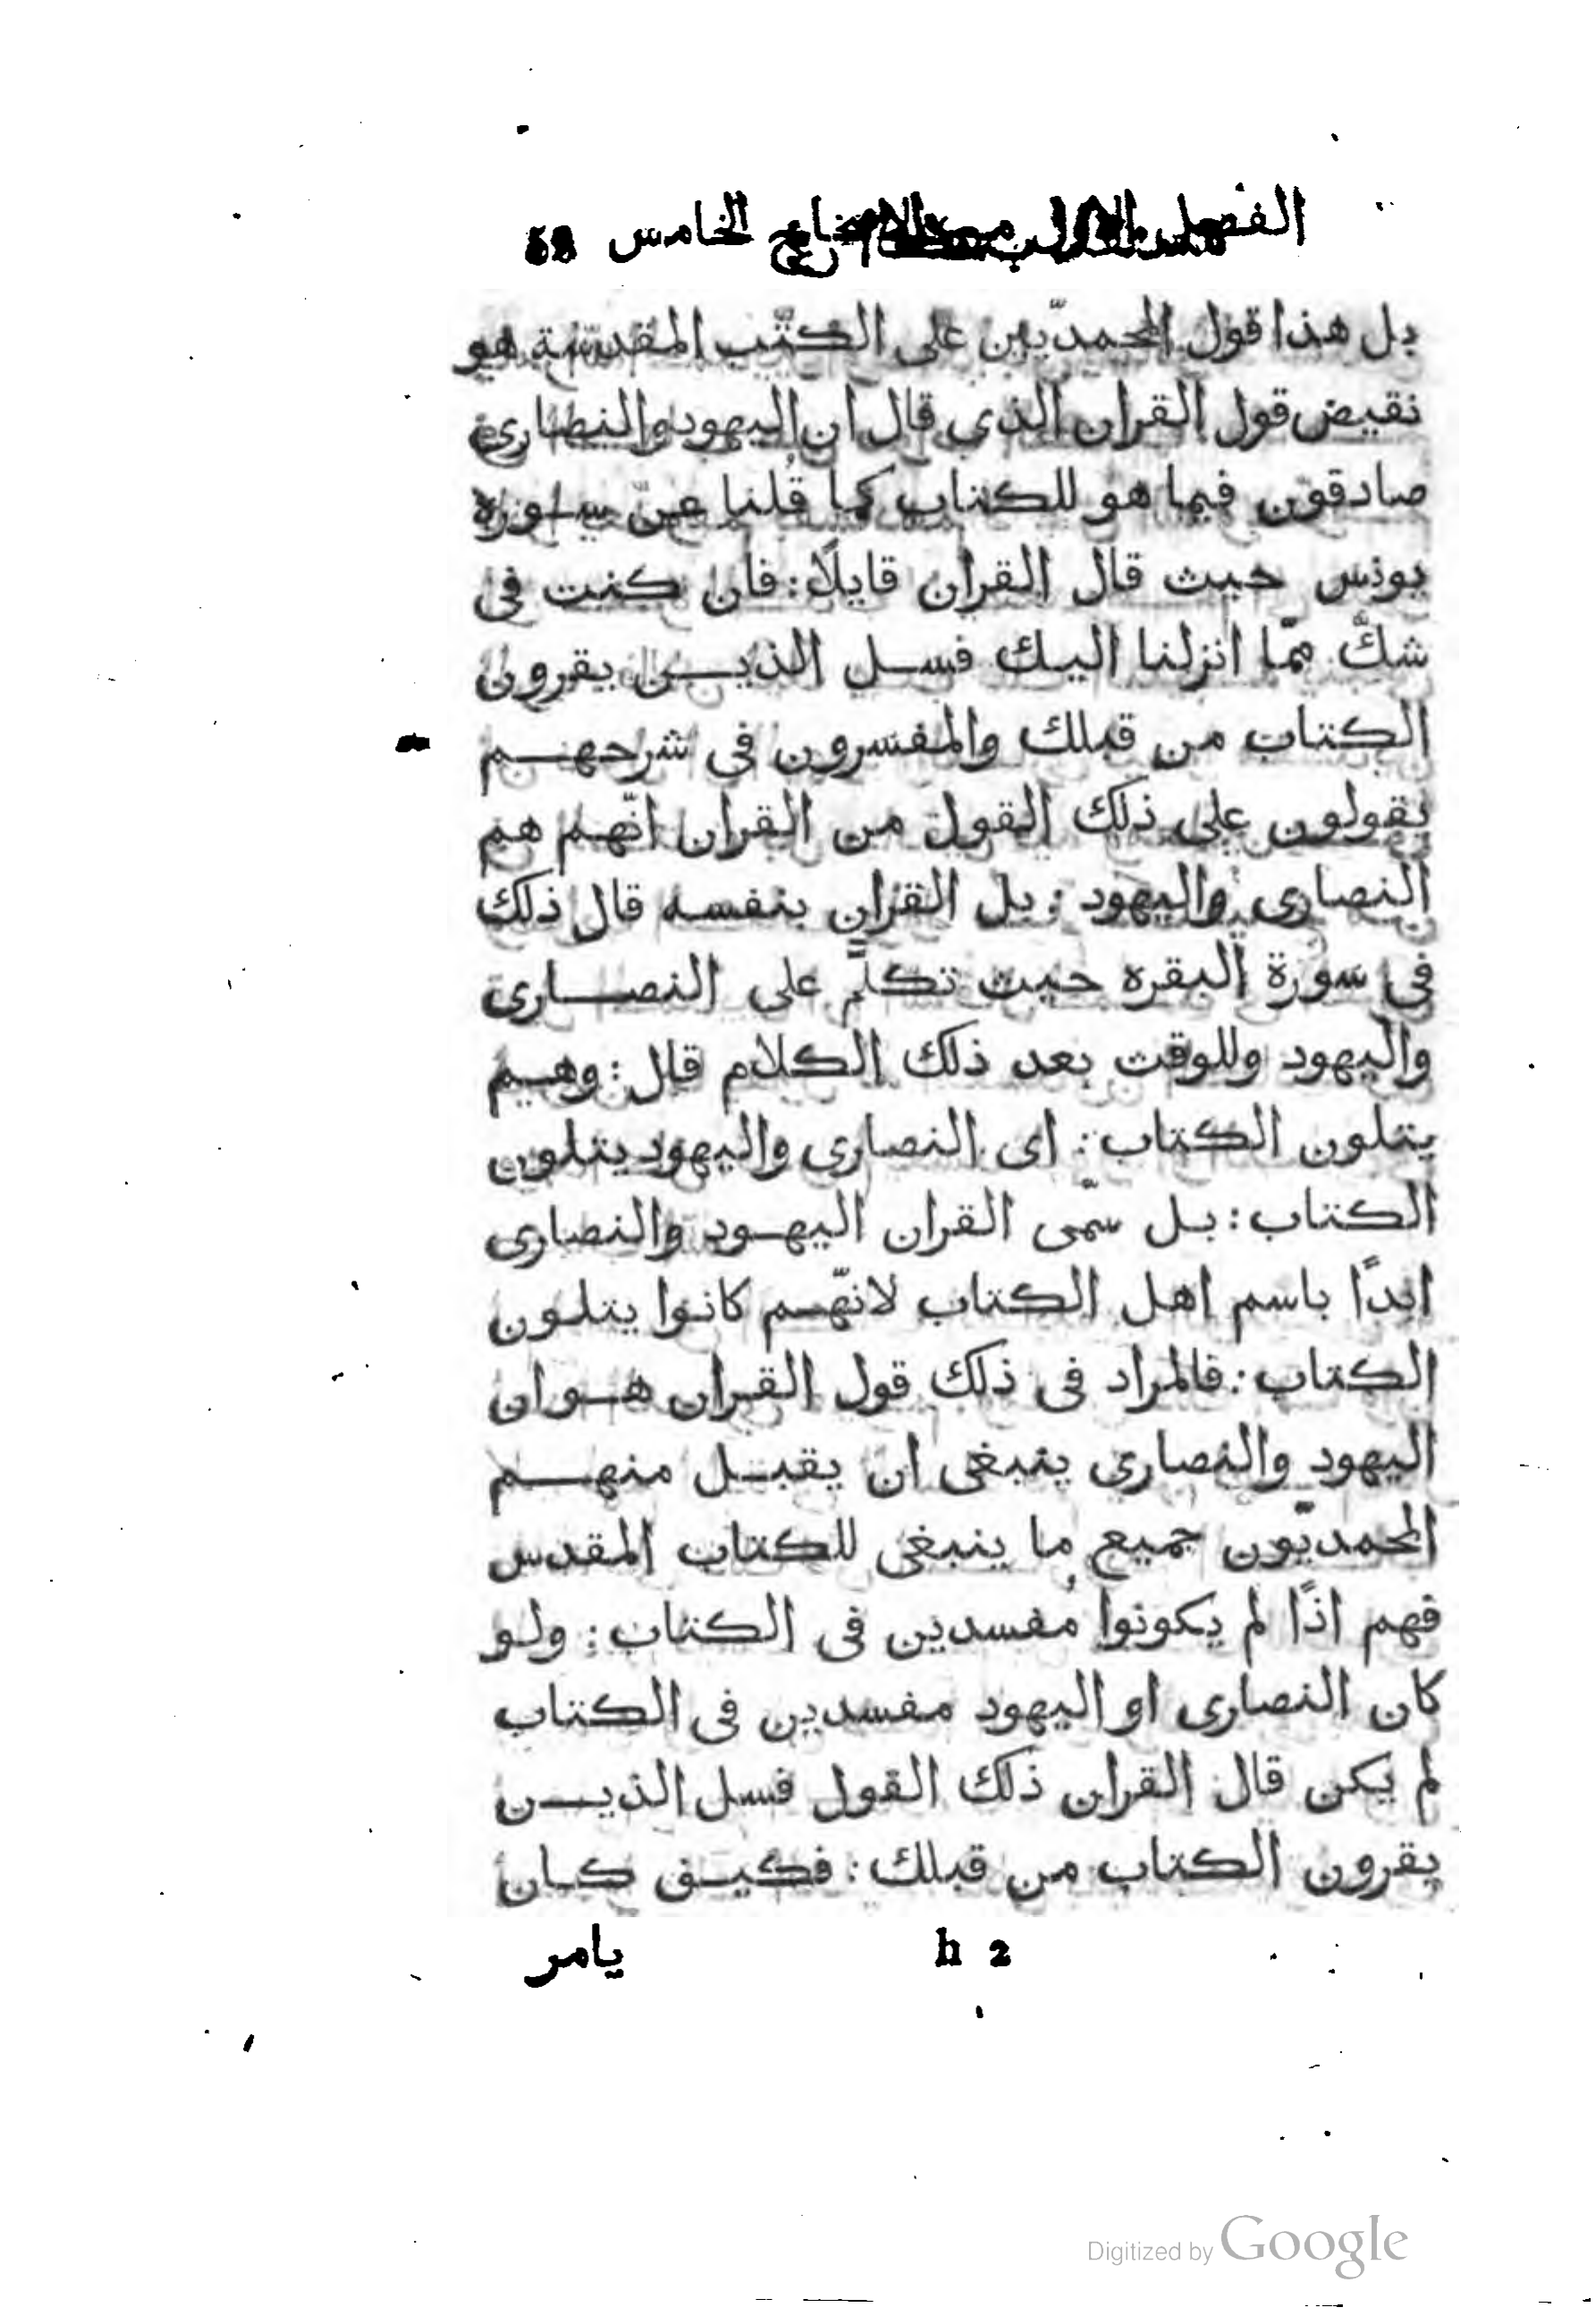 الفصل الاول من الخامس
بل هذا قول المحمديّين على الكتب المقدّسة هو
نقيض قول القران الذي قال ان اليهود والنصارى
صادقون فيما هو للكتاب كما قُلنا عن سورة
يونس حيث قال القران قايلاً: فان كنت فى
شكّ ممّا انزلنا اليك فسل الذيــن يقرون
الكتاب من قبلك والمفسرون فى شرحهــم
يقولون على ذلك القول من القران انّهم هم
النصارى واليهود: بل القران بنفسه قال ذلك
فى سورة البقره حيث تكلّم على النصــارى
واليهود وللوقت بعد ذلك الكلام قال: وهــم
يتلون الكتاب: اى النصارى واليهود يتلون
الكتاب: بـل سمّى القران اليهــود والنصارى
ابدًا باسم اهـل الكتاب لانّهـم كانوا يتلـون
الكتاب: فالمراد فى ذلك قول القران هــو ان
اليهود والنصارى ينبغى ان يقبــل منهــم
المحمديّون جميع ما ينبغى للكتاب المقدس
فهم اذًا لم يكونوا مفسدين فى الكتاب: ولـو
كان النصارى او اليهود مفسدين فى الكتاب
لم يكن قال القران ذلك القول فسل الذيــن
يقرون الكتاب من قبلك: فكيـف كـان
h 2 يامر
Digitized by Google